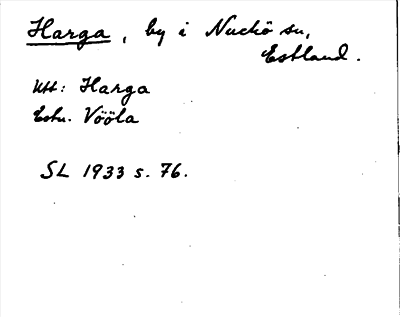 Harga, by i Nuckö sn,
Estland.
Utt: Harga
Estn. Vööla
SL 1933 s. 76.